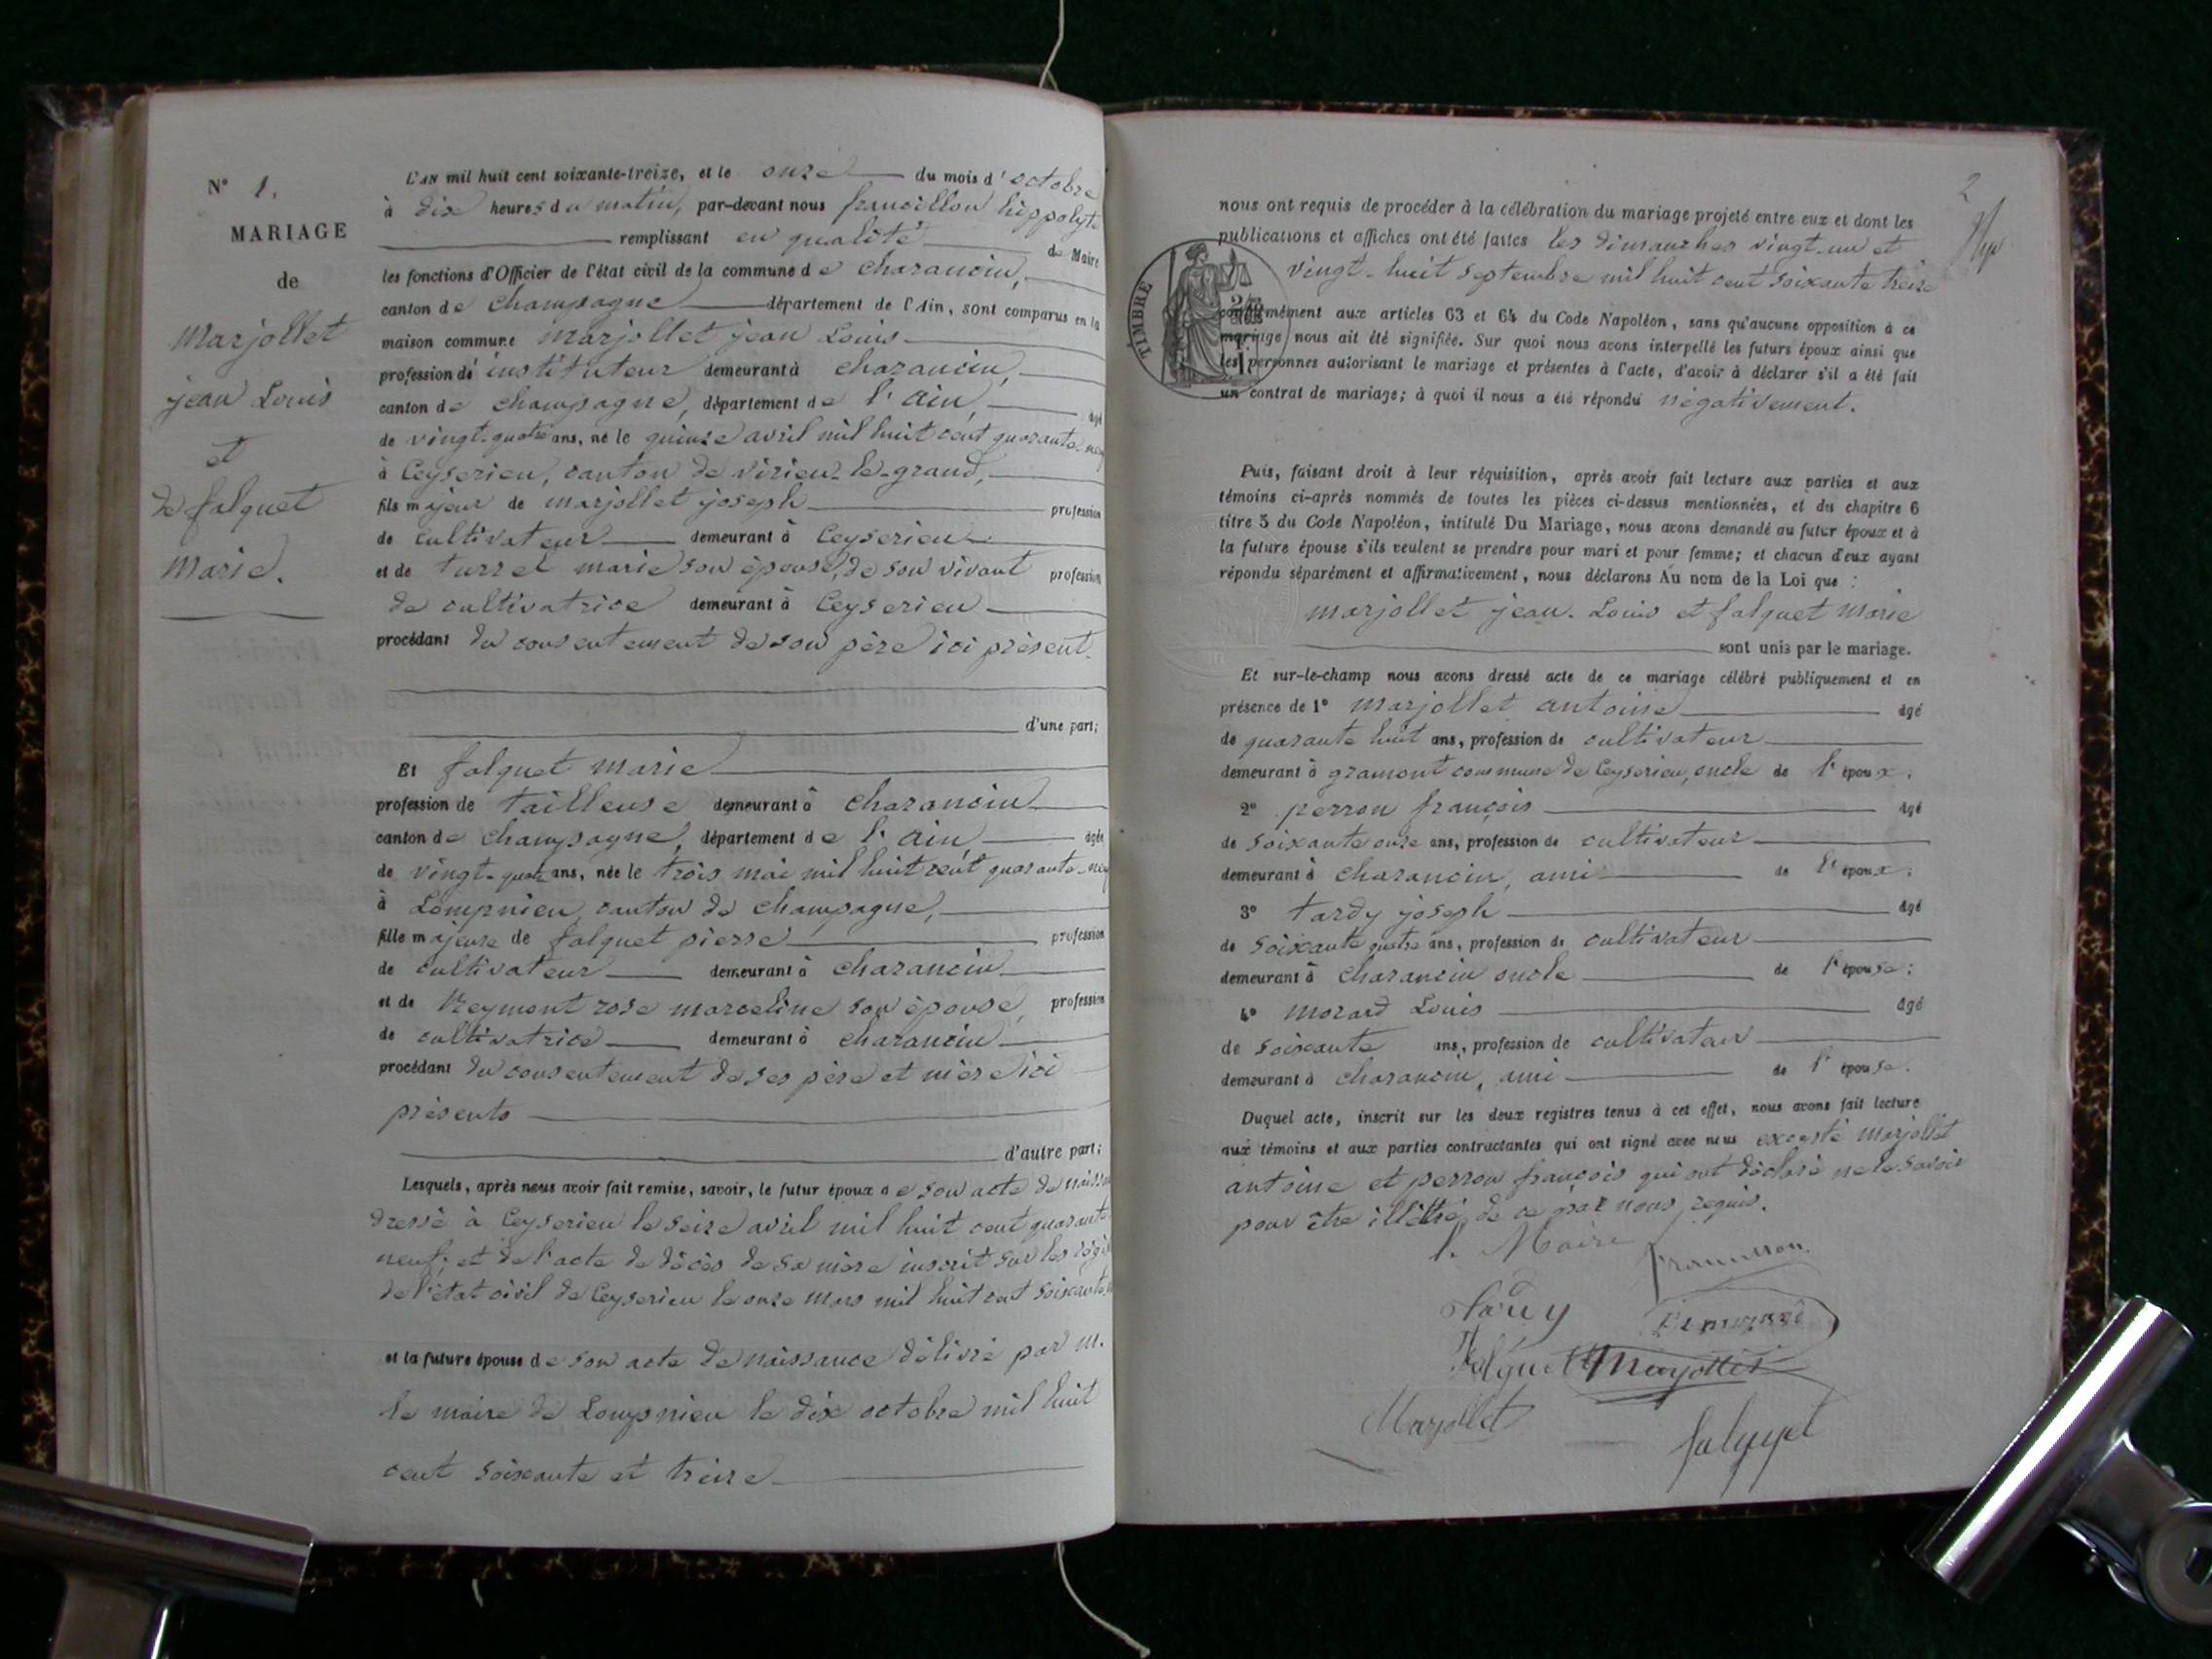 N° 1.
MARIAGE
de
Marjollet
jean Louis
et
de falquet
Marie.
L'AN mil huit cent soixante-treize, et le onze du mois d'octobre
à dix heures du matin, par-devant nous francillon hippolyte
remplissant en qualité de Maire
les fonctions d'Officier de l'état civil de la commune de charancin,
canton de Champagne département de l'Ain, sont comparus en la
maison commune marjollet jean Louis
profession d'instituteur demeurant à charancin,
canton de champagne, département de l'Ain, âgé
de vingt-quatre ans, né le quinze avril mil huit cent quarante-neuf
à Ceyserieu, canton de virieu-le-grand,
fils majeur de marjollet joseph profession
de cultivateur demeurant à Ceyserieu
et de turrel marie son épouse, de son vivant profession
de cultivatrice demeurant à Ceyserieu
procédant du consentement de son père ici présent.
d'une part;
Et falquet marie
profession de tailleuse demeurant à charancin
canton de champagne, département de l'Ain âgée
de vingt-quatre ans, née le trois mai mil huit cent quarante-neuf
à Lompnieu, canton de champagne,
fille majeure de falquet pierre profession
de cultivateur demeurant à charancin
et de Reymont rose marceline son épouse, profession
de cultivatrice demeurant à charancin
procédant du consentement de ses père et mère ici
présents
d'autre part;
Lesquels, après nous avoir fait remise, savoir, le futur époux de son acte de
dressé à Ceyserieu le seize avril mil huit cent quarante
neuf; et de l'acte de décès de sa mère inscrit sur les
de l'état civil de Ceyserieu le onze mars mil huit cent soixante
et la future épouse de son acte de naissance délivré par m.
le maire de Lompnieu le dix octobre mil huit
cent soixante et treize
2
nous ont requis de procéder à la célébration du mariage projeté entre eux et dont les
publications et affiches ont été faites les dimanches vingt-un et
vingt-huit septembre mil huit cent soixante treize
TIMBRE
conformément aux articles 63 et 64 du Code Napoléon, sans qu'aucune opposition à ce
mariage nous ait été signifiée. Sur quoi nous avons interpellé les futurs époux ainsi que
les personnes autorisant le mariage et présentes à l'acte, d'avoir à déclarer s'il a été fait
un contrat de mariage; à quoi il nous a été répondu négativement.
Puis, faisant droit à leur réquisition, après avoir fait lecture aux parties et aux
témoins ci-après nommés de toutes les pièces ci-dessus mentionnées, et du chapitre 6
titre 5 du Code Napoléon, intitulé Du Mariage, nous avons demandé au futur époux et à
la future épouse s'ils veulent se prendre pour mari et pour femme; et chacun d'eux ayant
répondu séparément et affirmativement, nous déclarons Au nom de la Loi que :
marjollet jean-Louis et falquet marie
sont unis par le mariage.
Et sur-le-champ nous avons dressé acte de ce mariage célébré publiquement et en
présence de 1° Marjollet antoine âgé
de quarante huit ans, profession de cultivateur
demeurant à gramont commune de Ceyserieu, oncle de l'époux;
2° perron françois âgé
de soixante onze ans, profession de cultivateur
demeurant à charancin, ami de l'époux;
3° tardy joseph âgé
de soixante quatre ans, profession de cultivateur
demeurant à charancin oncle de l'épouse;
4° morard Louis âgé
de soixante ans, profession de cultivateur
demeurant à charancin, ami de l'épouse.
Duquel acte, inscrit sur les deux registres tenus à cet effet, nous avons fait lecture
aux témoins et aux parties contractantes qui ont signé avec nous excepté marjollet
antoine et perron françois qui ont déclaré ne le savoir
pour être illétré, de ce par nous requis.
le Maire francillon
tardy
Falquet Marjollet
Marjollet falquet